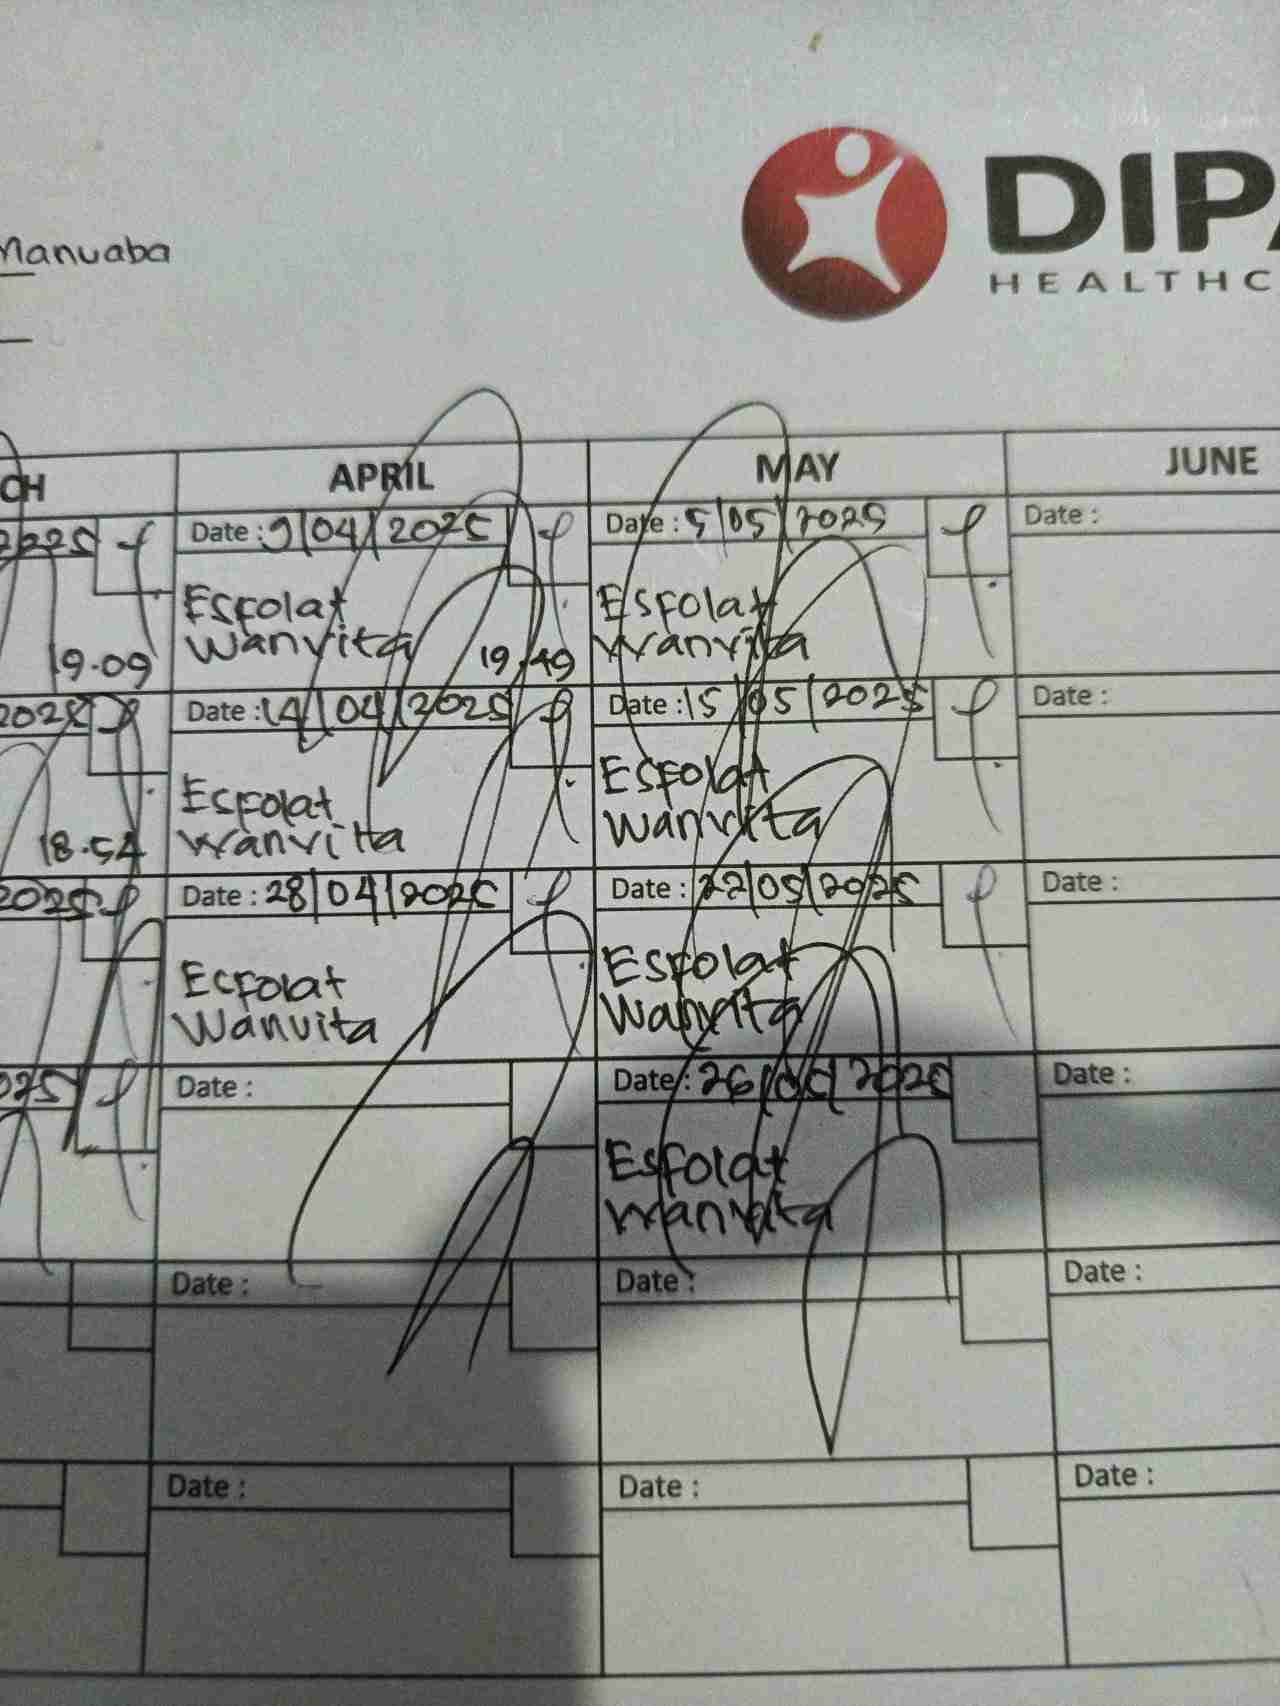 Manuaba
DIPA
HEALTHC
CH
APRIL
MAY
JUNE
2025
Date : 9/04/2025
Date : 5/05/2025
Date :
19.09
Esfolat
Wanvita
19.49
Esfolat
Wanvita
2025
Date : 14/04/2025
Date : 15/05/2025
Date :
18.54
Esfolat
Wanvita
Esfolat
Wanvita
2025
Date : 28/04/2025
Date : 22/05/2025
Date :
Esfolat
Wanvita
Esfolat
Wanvita
025
Date :
Date : 26/05/2025
Date :
Esfolat
Wanvita
Date :
Date :
Date :
Date :
Date :
Date :